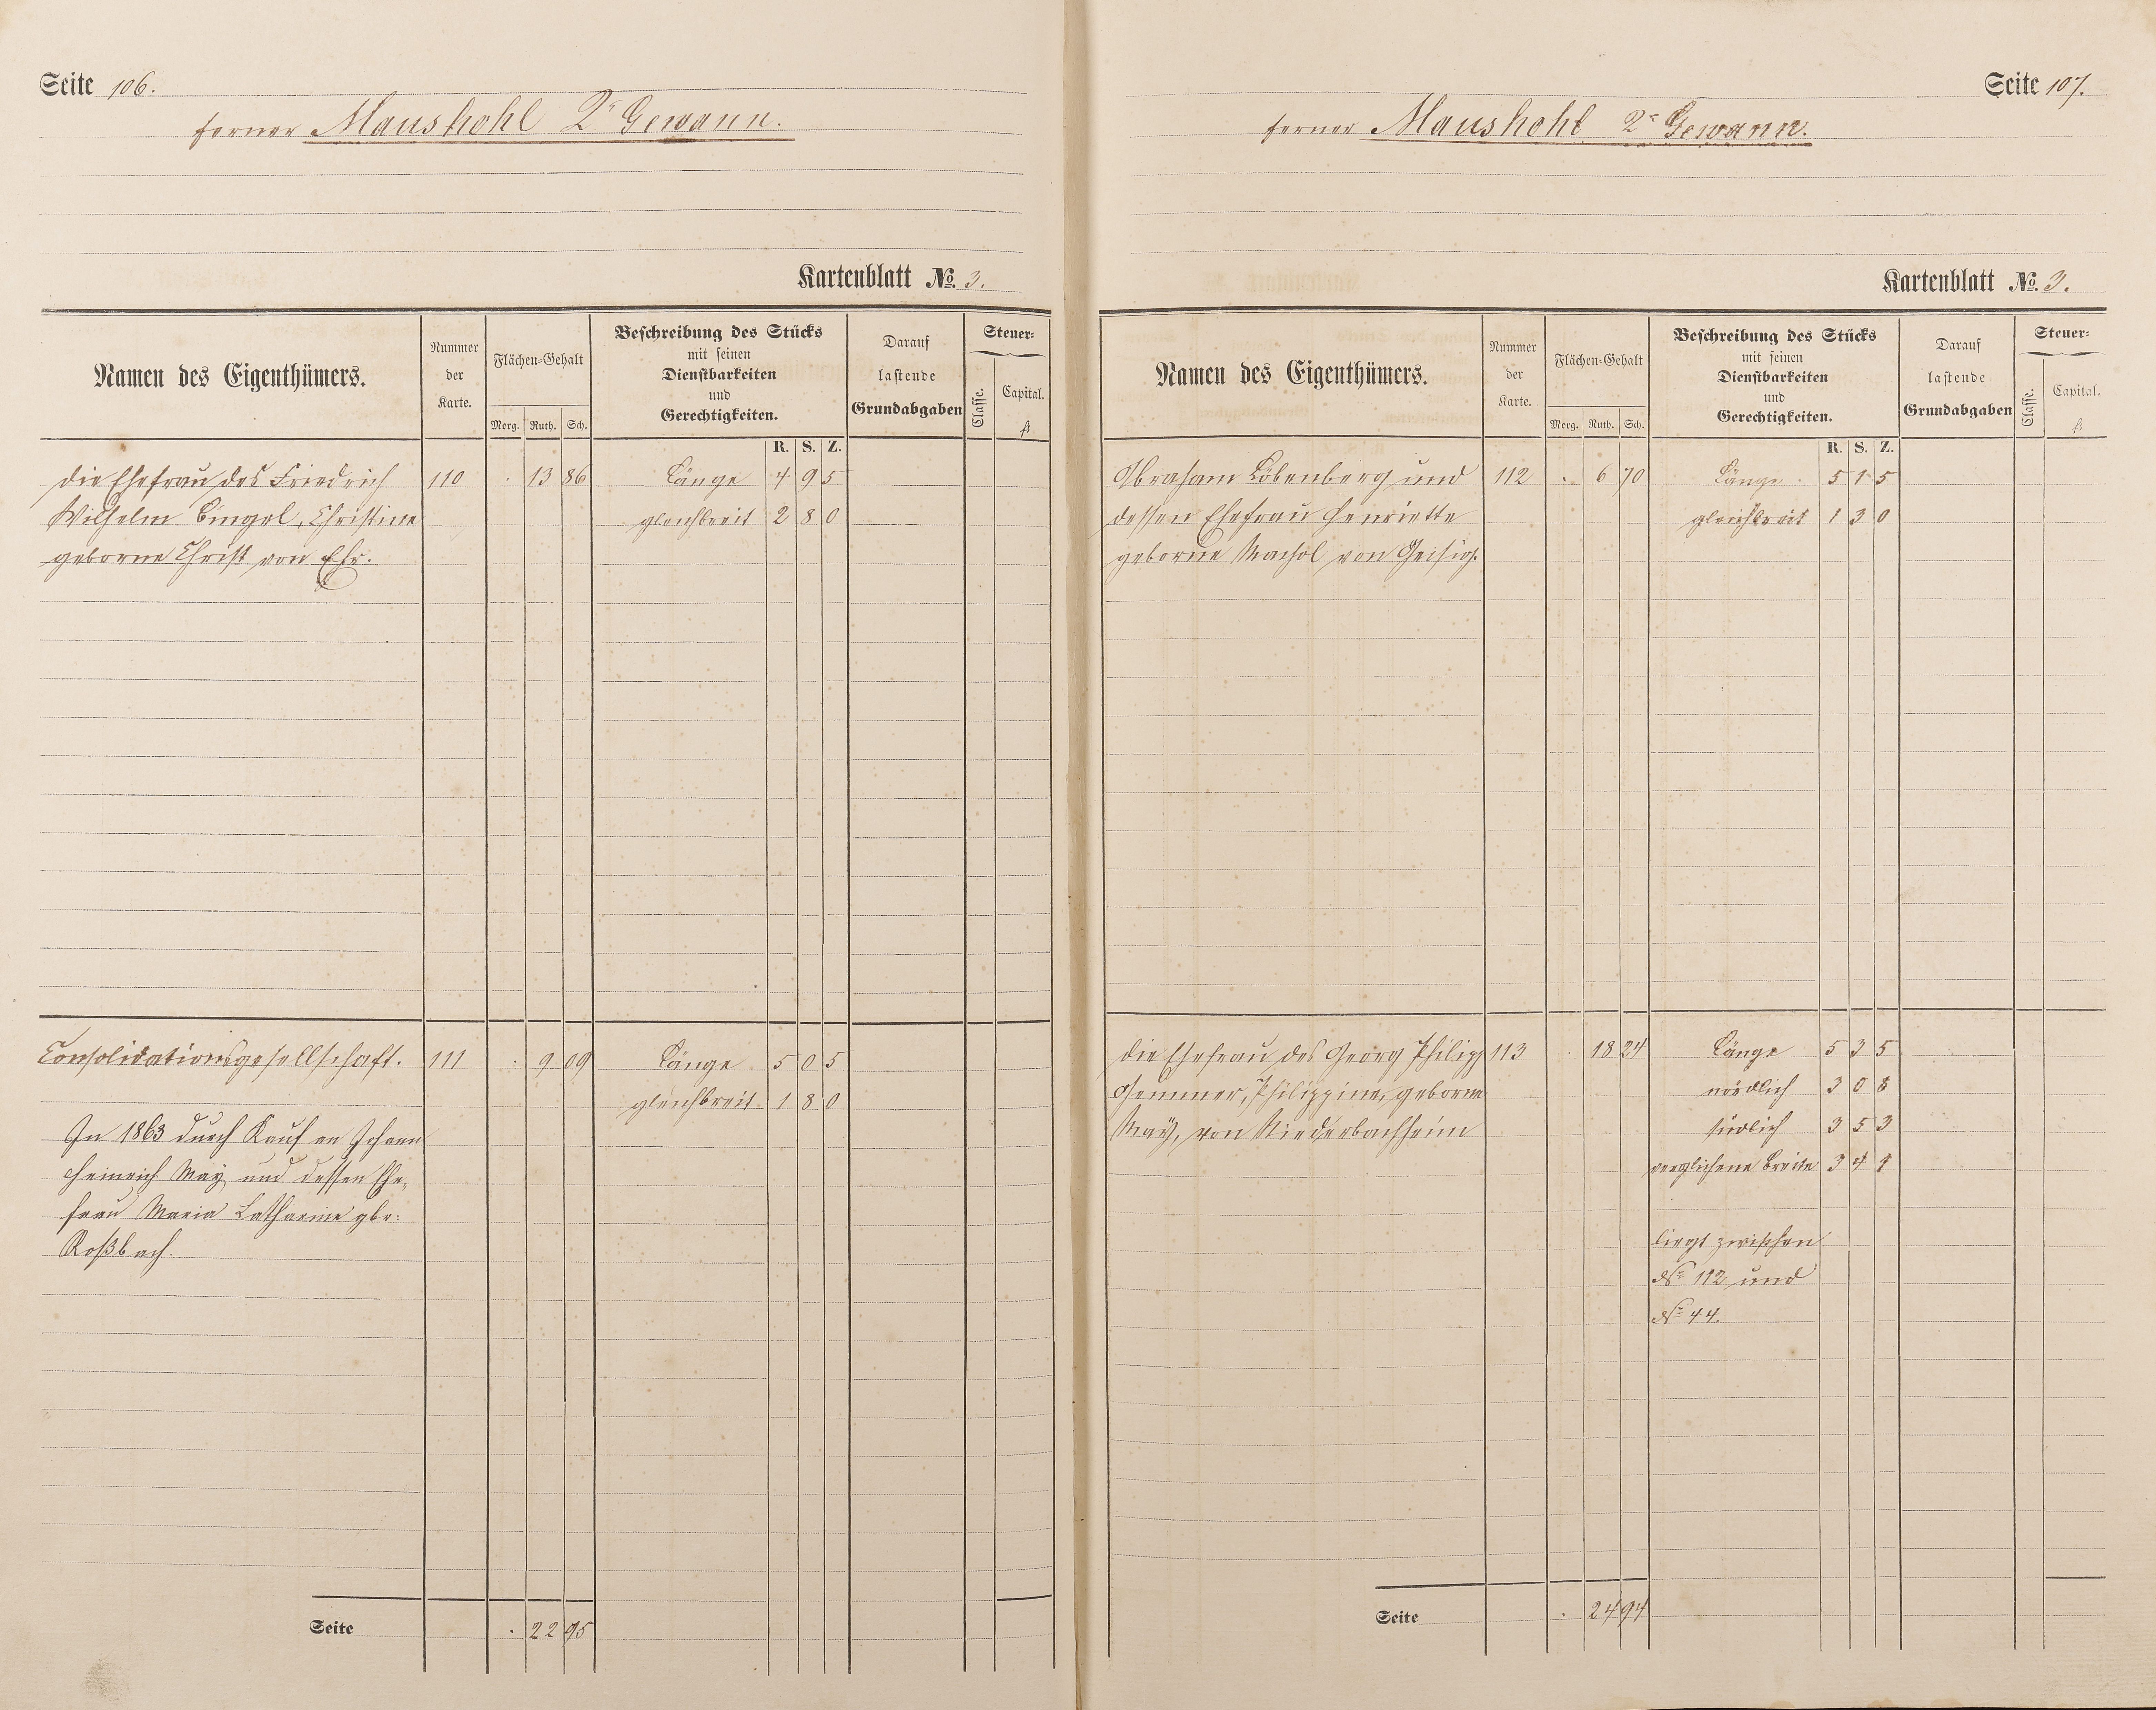 Seite 106.
ferner Maushohl 2r Gewann.
Kartenblatt No. 3.
Namen des Eigenthümers.
Nummer der Karte.
Flächen-Gehalt
Morg. Ruth. Sch.
Beschreibung des Stücks
mit seinen
Dienstbarkeiten
und
Gerechtigkeiten.
Darauf
lastende
Grundabgaben
Steuer-
Classe. Capital.
fl.
R. S. Z.
die Ehefrau des Friedrich 110 . 13 86 Länge 4 9 5
Wilhelm Bingel, Christine gleichbreit 2 8 0
geborne Christ von Ehr.
Consolidationsgesellschaft. 111 . 9 09 Länge 5 0 5
gleichbreit 1 8 0
In 1863 durch Kauf an Johann
Heinrich May und dessen Ehe-
frau Maria Catharine gbr:
Roßbach.
Seite . 22 95
Seite 107.
ferner Maushohl 2r Gewann.
Kartenblatt No. 3.
Namen des Eigenthümers.
Nummer der Karte.
Flächen-Gehalt
Morg. Ruth. Sch.
Beschreibung des Stücks
mit seinen
Dienstbarkeiten
und
Gerechtigkeiten.
Darauf
lastende
Grundabgaben
Steuer-
Classe. Capital.
fl.
R. S. Z.
Abraham Löbenberg und 112 . 6 70 Länge 5 1 5
dessen Ehefrau Henriette gleichbreit 1 3 0
geborne Machol von Geisig.
die Ehefrau des Georg Philipp 113 . 18 24 Länge 5 3 5
Gemmer, Philippine, geborne nördlich 3 0 8
May, von Niederbachheim südlich 3 5 3
verglichene Breite 3 4 1
liegt zwischen
No 112 und
No 44.
Seite . 24 94